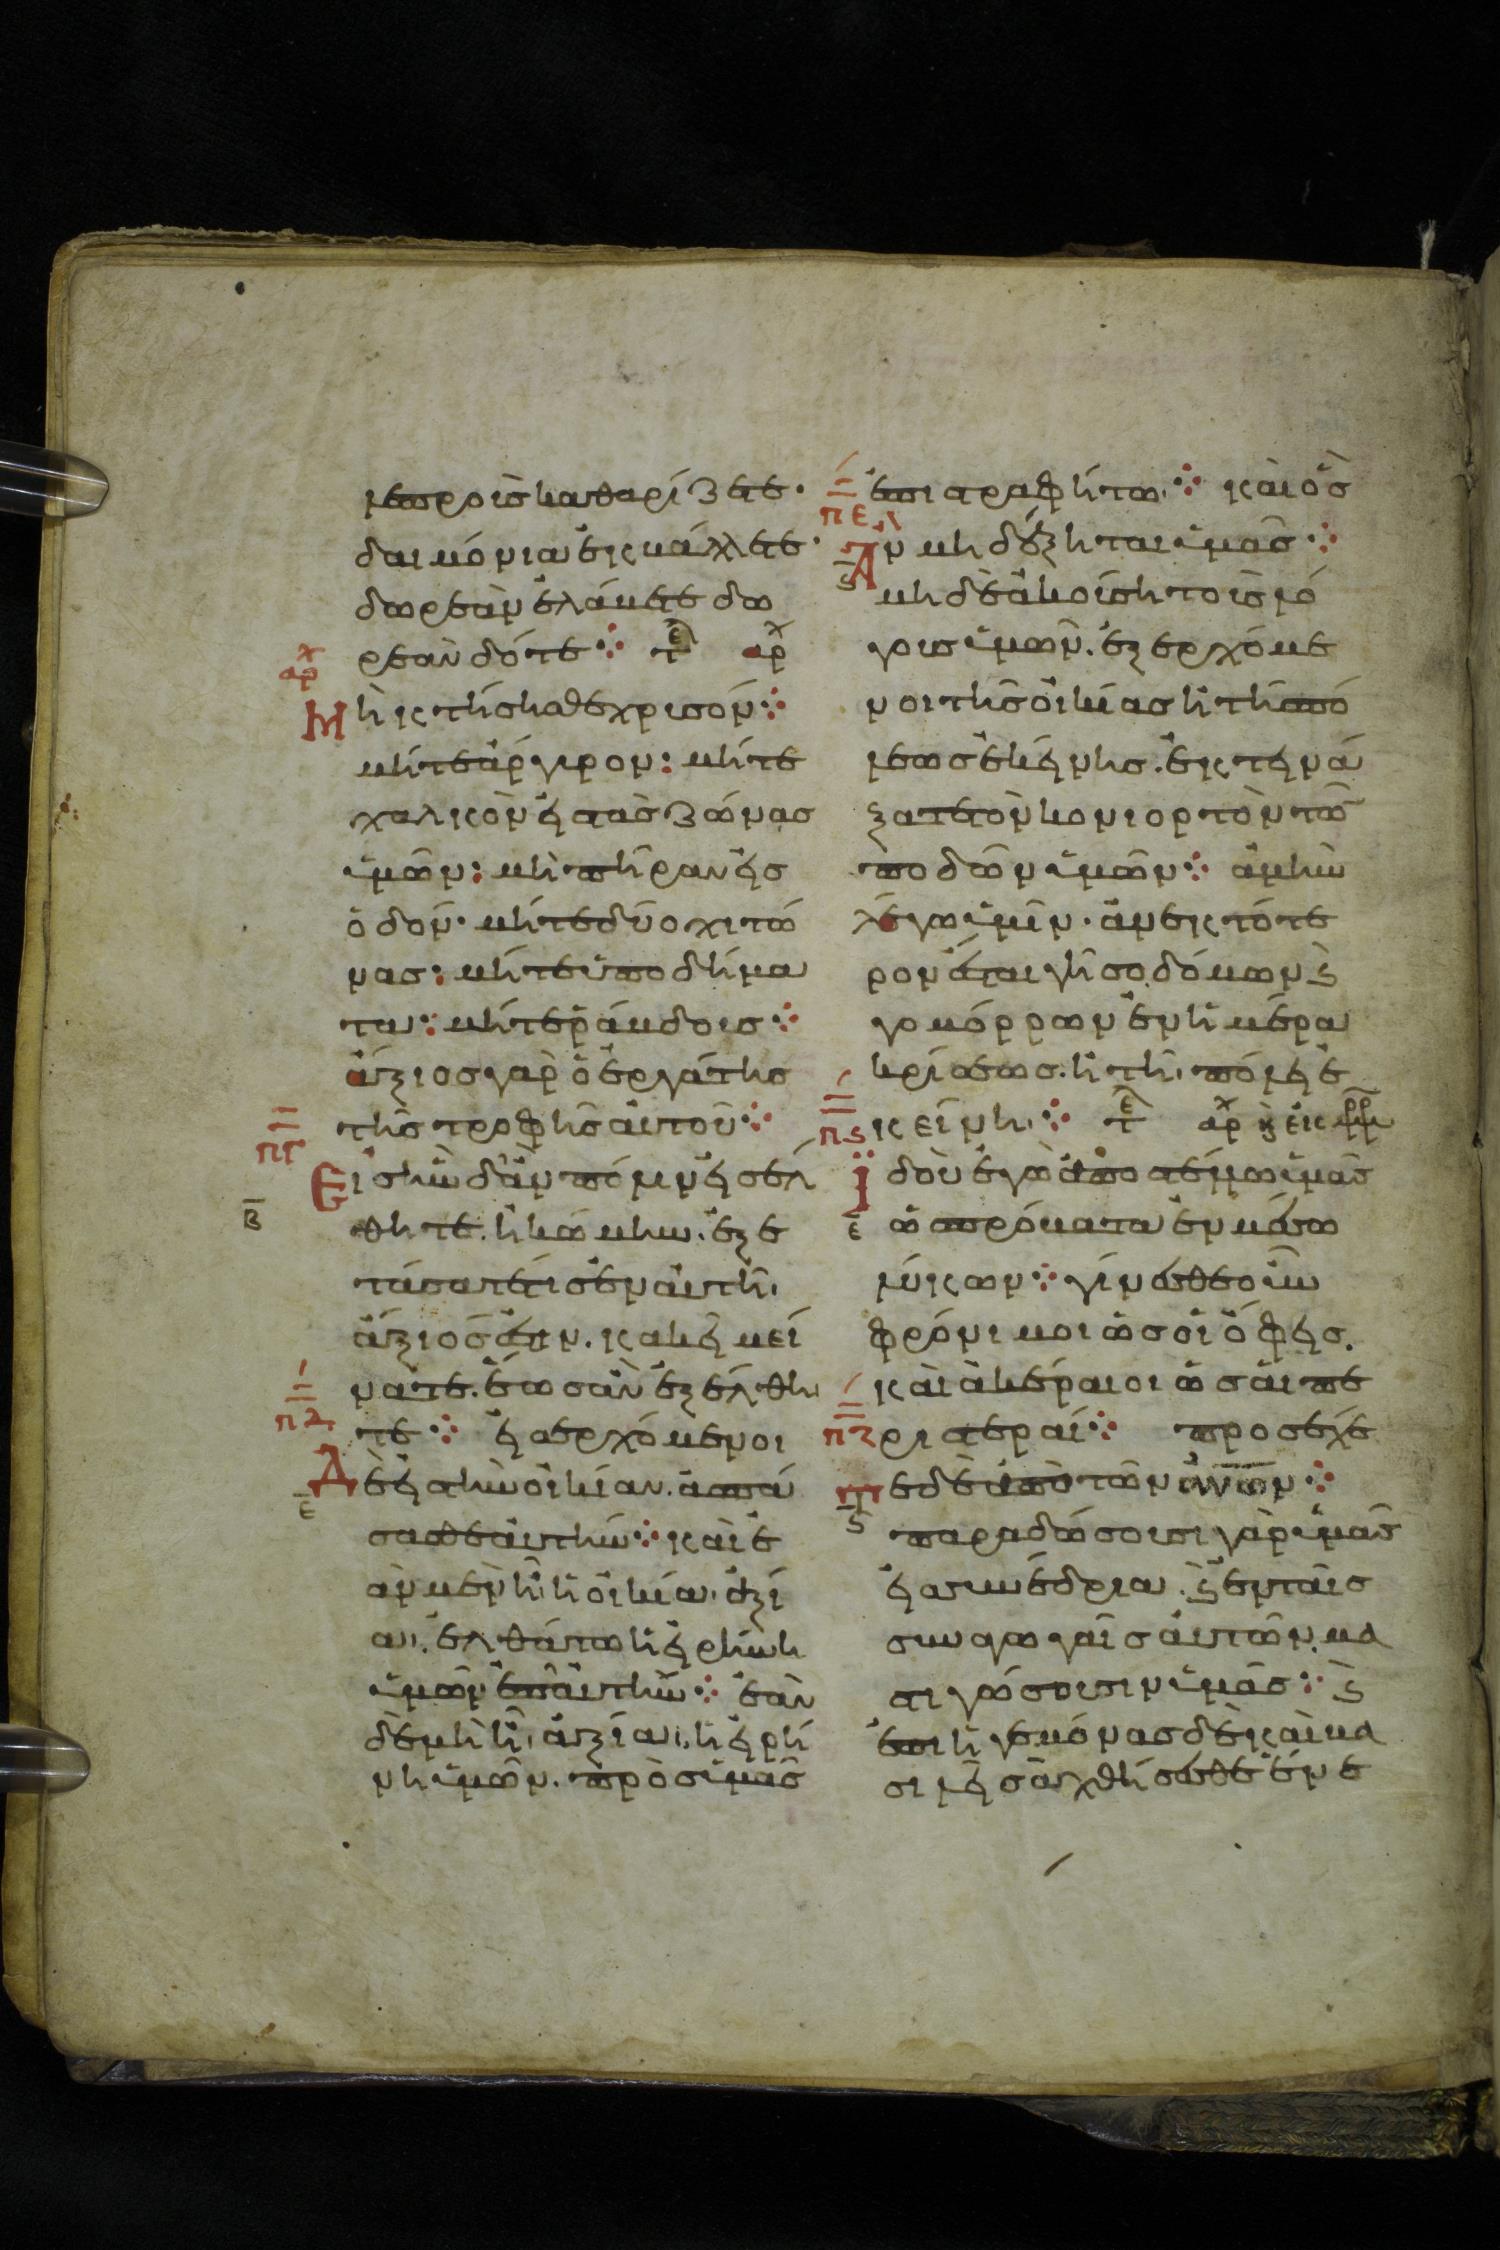 λεπροὺς καθαρίζετε·
δαιμόνια ἐκβάλλετε·
δωρεὰν ἐλάβετε δω
ρεὰν δότε ⁘ τε αρχ
αρχ
Μὴ κτήσησθε χρυσόν ⁘
μήτε ἄργυρον : μήτε
χαλκὸν εἰς τὰς ζώνας
ὑμῶν : μὴ πήραν εἰς
ὁδόν· μήτε δύο χιτῶ
νας : μήτε ὑποδήμα
τα : μήτε ῥάβδους ⁘
ἄξιος γὰρ ὁ ἐργάτης
τῆς τροφῆς αὐτοῦ ⁘
πγ
Εἰς ἣν δ' ἂν πόλιν εἰσέλ
β
θητε. ἢ κώμην. ἐξε
τάσατε τίς ἐν αὐτῆι
ἄξιός ἐστιν. κακεῖ μεί
νατε. ἕως ἂν ἐξέλθη
πδ
τε ⁘ εἰσερχόμενοι
Δὲ εἰς τὴν οἰκίαν. ἀσπά
ε
σασθε αὐτήν ⁘ καὶ ἐ
ὰν μὲν ἦι ἡ οἰκία ἀξί
α. ἐλθάτω ἡ εἰρήνη
ὑμῶν ἐπ' αὐτήν ⁘ ἐὰν
δὲ μὴ ἦι ἀξία. ἡ εἰρή
νη ὑμῶν. πρὸς ὑμᾶς
ἐπιστραφήτω ⁘ καὶ ὃς
πε
Ἂν μὴ δέξηται ὑμᾶς ⁘
ς
μηδὲ ἀκούσῃ τοὺς λό
γους ὑμῶν. ἐξερχόμε
νοι τῆς οἰκίας ἢ τῆς πό
λεως ἐκείνης. ἐκτινά
ξατε τὸν κονιορτὸν τῶν
ποδῶν ὑμῶν ⁘ ἀμὴν
λέγω ὑμῖν. ἀνεκτότε
ρον ἔσται γῆ σοδόμων ϗ
γομόρρων ἐν ἡμέρα
κρίσεως. ἢ τῆ πόλει ἐ
πς
κείνη ⁘ τε αρχ
Ἰδοὺ ἐγὼ ἀποστέλλω ὑμᾶς
ε
ὡς πρόβατα ἐν μέσω
λύκων ⁘ γίνεσθε οὖν
φρόνιμοι ὡς οἱ ὄφεις.
καὶ ἀκέραιοι ὡς αἱ πε
πζ
ριστεραί ⁘ προσέχε
Τε δὲ ἀπὸ τῶν ἀνων ⁘
ς
παραδώσουσι γὰρ ὑμᾶς
εἰς συνέδρια. ϗ ἐν ταῖς
συναγωγαῖς αὐτῶν. μα
στιγώσουσιν ὑμᾶς ⁘ ϗ
ἐπὶ ἡγεμόνας δὲ καὶ βα
σιλεῖς ἀχθήσεσθε ἕνε